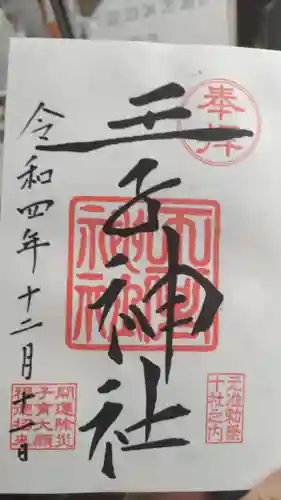 奉拝
元准勅祭
十社之内
王子神社
令和四年十二月十一日
開運除災
子育大願
福徳招来